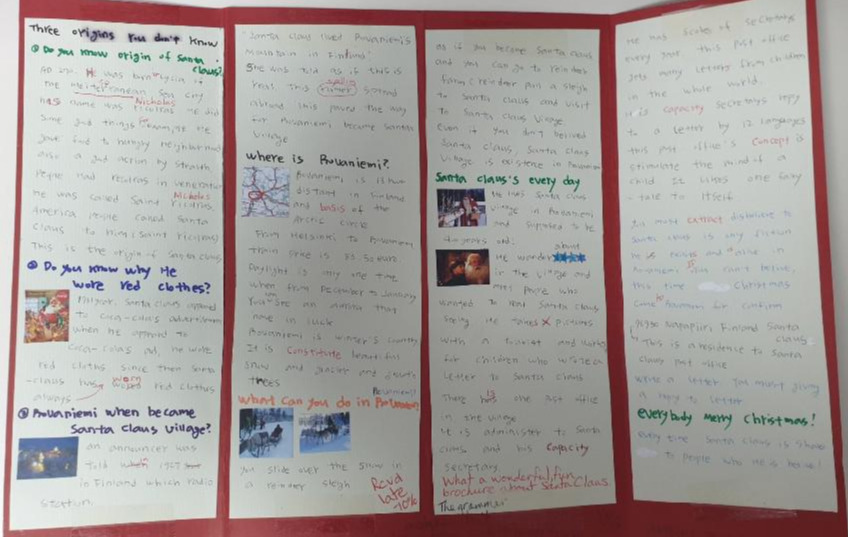 Three origins you don't know
① Do you know origin of Santa
claus?
He was born
the mediterranean Sea city
his name was Nicholas He did
some good things for example He
gave food to hungry neighborhood
also a good action by stealth
People had Nicolras in veneration
Nicholas
He was called Saint Nicolras.
America People called Santa
Claus to him (Saint Nicolras)
This is the origin of Santa claus
② Do you know why He
wore red clothes?
Santa claus appeared
to coca-cola's advertisement
when He appeard to
coca-cola's ad, he wore
red cloths since then santa
-claus has worn red cloths
always
③ Rovaniemi when became
Santa claus village?
an announcer was
told in 1927
in Finland which radio
station.
"Santa claus lived Rovaniemi's
mountain in Finland"
She was told as if this is
real. This rumer spread
abroad this paved the way
for Rovaniemi became Santa
village
where is Rovaniemi?
Rovaniemi is
distant in Finland
and basis of the
Arctic circle
From Helsinki to Rovaniemi
train
Daylight is only one time
when from December to January
You see an aurora
have in luck
Rovaniemi is winter's country
It is constitute beautiful
snow and glacier and
trees
Rovaniemi?
what can you do in
you slide over the snow in
a reinder sleigh
Rcvd
late
-10%
as if you become Santa claus
and you can go to reindeer
farm (reindeer pull a sleigh
to Santa claus and visit
to Santa claus village
Even if you don't belived
Santa claus, Santa claus
village is existence in Rovaniemi
Santa claus's every day
He lives Santa claus
village in Rovaniemi
and supposed to be
years old. about
He wander
in the village and
meet People who
wanted to real Santa claus
He takes pictures
with a tourist and
for children who wrote a
letter to Santa claus
There is one Post office
in the village
it is administer to Santa
claus and his capacity
secretary.
What a wonderful, fun
brochure about Santa Claus
The grammer
He has scores of secretarys
every year this post office
gets many letters from children
in the whole world
capacity secretarys repy
to a letter by 12 languages
this post office's concept is
stimulate the mind of a
child It likes one fairy
-tale to itself
most extract distribute to
Santa claus is any fiction
he is exists and alive in
Rovaniemi If you can't believe,
this time Christmas
Come to Rovaniemi for confirm
Napapiiri, Finland Santa
claus
This is a residence to Santa
claus post office
write a letter you might giving
a repy to letter
everybody merry christmas!
every time Santa claus is
to people who he is believe!